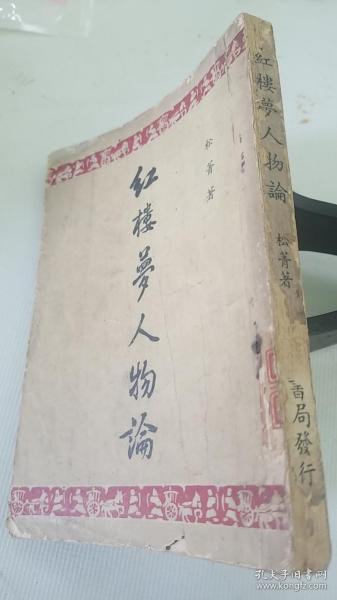 紅樓夢人物論
松菁著
紅樓夢人物論
松菁著
書局發行
孔夫子旧书网